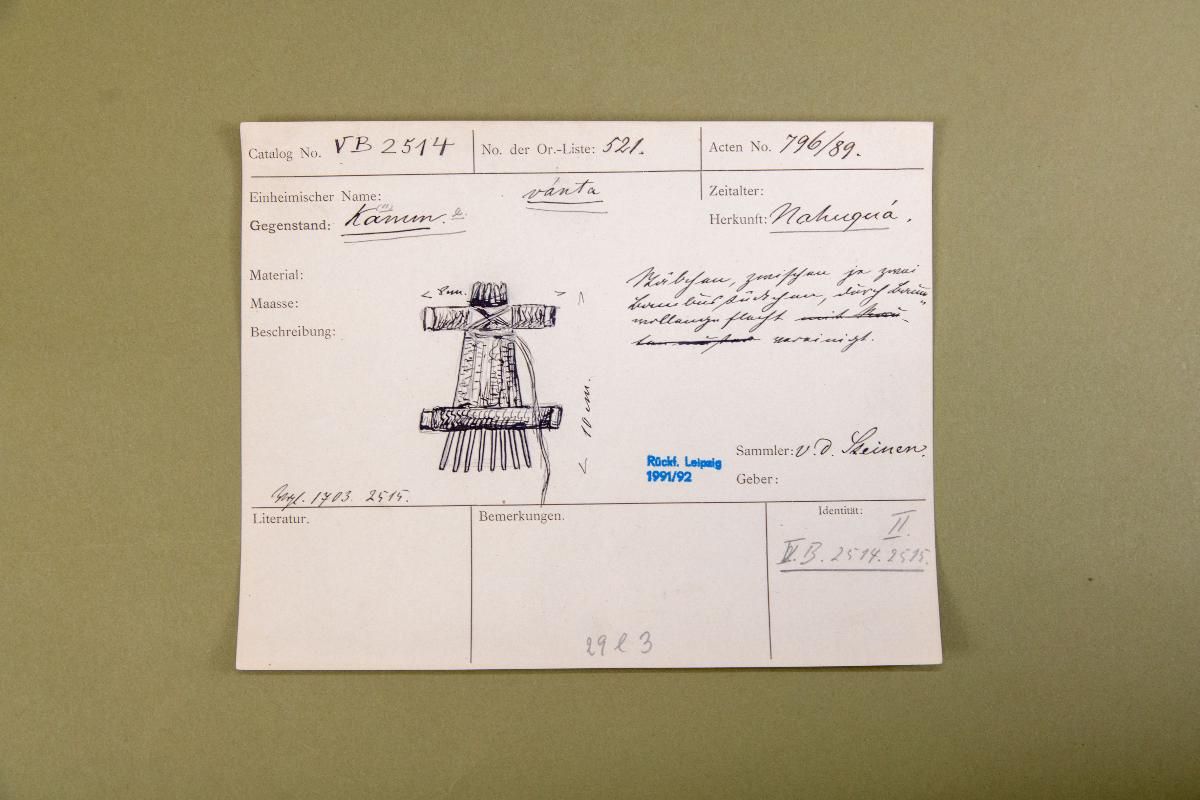 Catalog No. VB 2514
No. der Or.-Liste: 521.
Acten No. 796/89.
Einheimischer Name: vánta
Zeitalter:
Gegenstand: Kamm.
Herkunft: Nahuquá.
Material:
Maasse:
Beschreibung:
< 8 cm. >
< 10 cm. >
Stäbchen, zwischen je zwei
Bambusstückchen, durch Baum-
wollengeflecht
vereinigt.
Sammler: v. d. Steinen.
Geber:
Rückf. Leipzig
1991/92
Vergl. 1703. 2515.
Literatur.
Bemerkungen.
Identität:
II.
V.B. 2514. 2515.
29 l 3